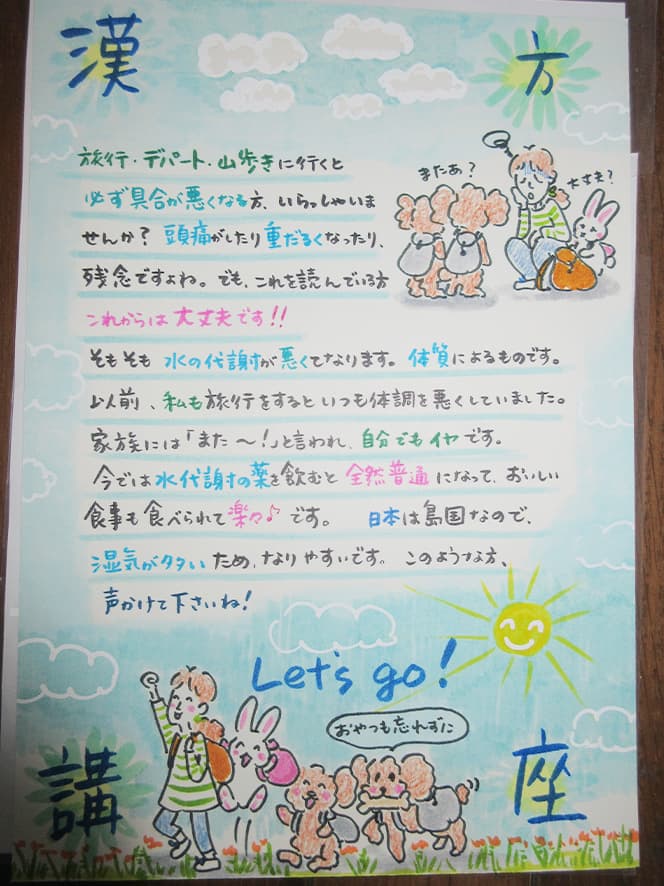 漢方
旅行・デパート・山歩きに行くと
必ず具合が悪くなる方、いらっしゃいま
せんか？頭痛がしたり重だるくなったり、
残念ですよね。でも、これを読んでいる方
これからは大丈夫です!!
またあ？
大丈夫？
そもそも 水の代謝が悪くてなります。体質によるものです。
以前、私も旅行をするといつも体調を悪くしていました。
家族には「また〜！」と言われ、自分でもイヤです。
今では水代謝の薬を飲むと全然普通になって、おいしい
食事も食べられて楽々♪です。 日本は島国なので、
湿気が多いため、なりやすいです。このような方、
声かけて下さいね！
Let's go!
おやつも忘れずに
講座